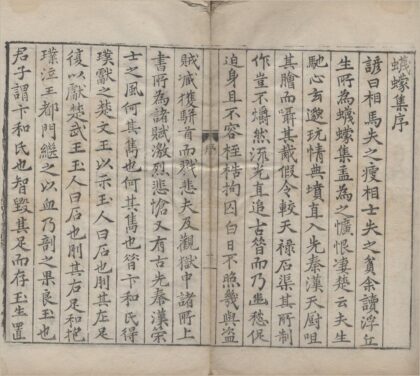 蠛蠓集序
諺曰相馬失之瘦相士失之貧余讀浮丘
生所為蠛蠓集盖為之憤恨凄楚云夫生
馳心玄邈玩情典墳直入先秦漢天厨咀
其膾而嚼其胾假令較天禄石渠其所制
作豈不皭然流光直追古昔而乃幽愁促
迫身且不容桎梏拘囚白日不照幾與盗
賊滅獲駢首而戮悲夫及觀獄中諸所上
書所為諸賦激烈悲愴又有古先秦漢宗
士之風何其雋也何其雋也昔卞和氏得
璞獻之楚文王以示玉人曰石也刖其左足
後以獻楚武王玉人曰石也刖其右足和抱
璞泣王都門繼之以血乃剖之果良玉也
君子謂卞和氏也智毀其足而存玉生置
序